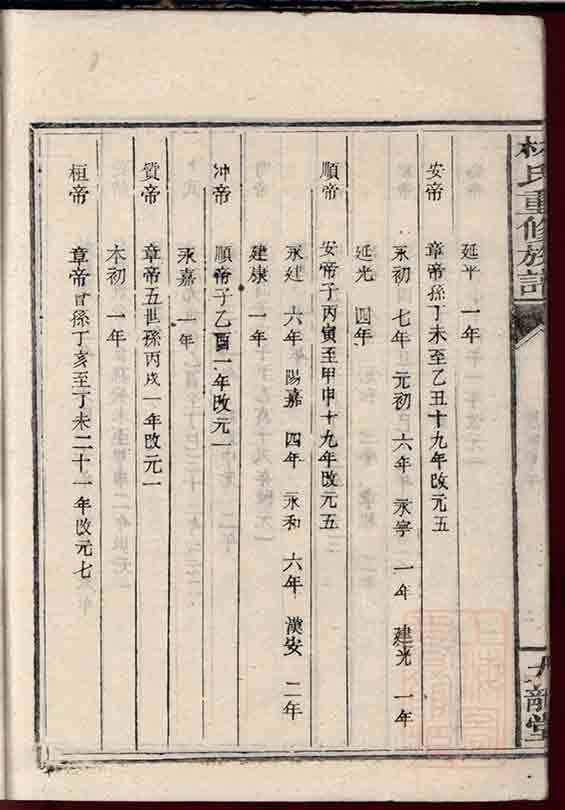 林氏重修族譜
九龍堂
延平 一年
安帝 章帝孫丁未至乙丑十九年改元五
永初 七年 元初 六年 永寧 一年 建光 一年
延光 四年
順帝 安帝子丙寅至甲申十九年改元五
永建 六年 陽嘉 四年 永和 六年 漢安 二年
建康 一年
冲帝 順帝子乙酉一年改元一
永嘉 一年
質帝 章帝五世孫丙戌一年改元一
本初 一年
桓帝 章帝曾孫丁亥至丁未二十一年改元七